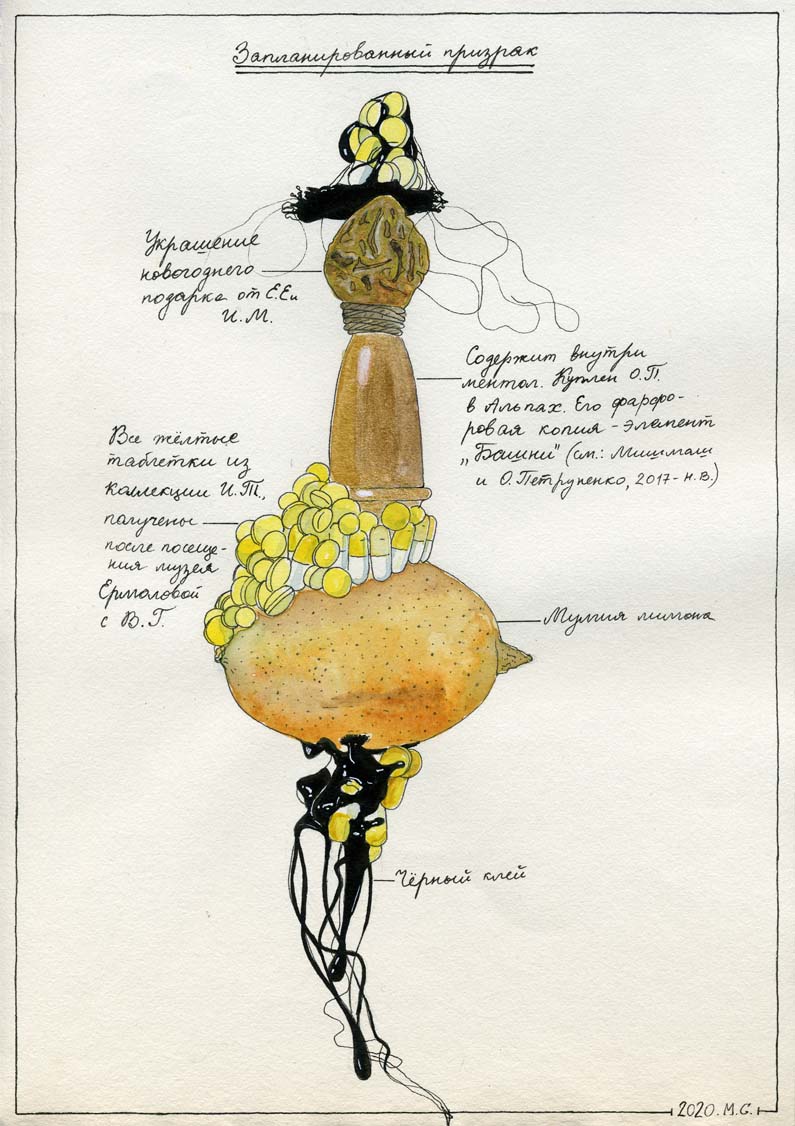 Запланированный призрак
Украшение
новогоднего
подарка от Е.Е и
И.М.
Содержит внутри
ментол. Куплен О.П.
в Альпах. Его фарфо-
ровая копия - элемент
„Башни" (см.: Мишмаш
и О. Петрупенко, 2017 - н.в.)
Все жёлтые
таблетки из
коллекции И.Т.,
получены
после посеще-
ния музея
Ермоловой
с В.Г.
Мумия лимона
Чёрный клей
2020. М.С.